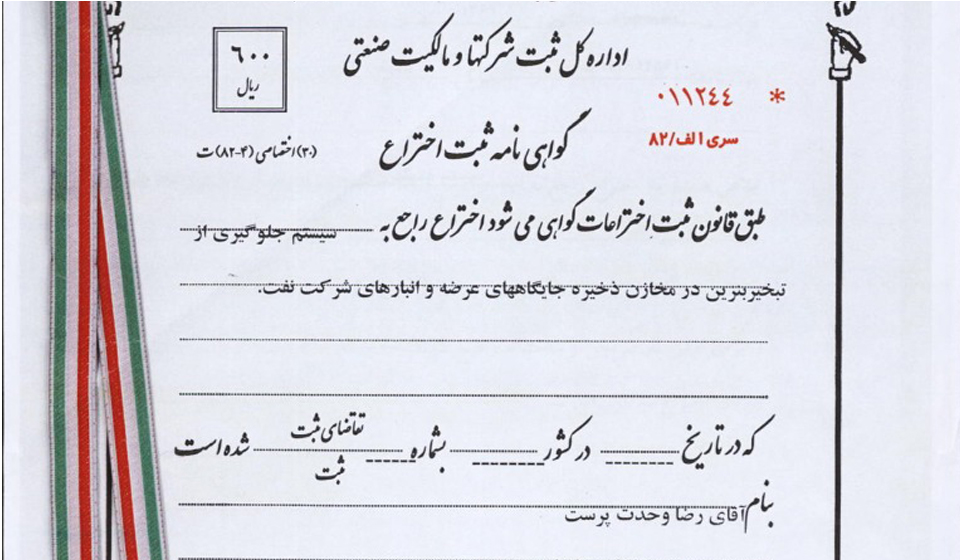 اداره کل ثبت شرکتها و مالکیت صنعتی
۶۰۰
ریال
* ۰۱۱۲۴۴
سری الف/۸۲
گواهی نامه ثبت اختراع
(۳۰) اختصاصی (۴-۸۲) ت
طبق قانون ثبت اختراعات گواهی می شود اختراع راجع به سیستم جلوگیری از
تبخیربنزین در مخازن ذخیره جایگاههای عرضه و انبارهای شرکت نفت.
که در تاریخ در کشور بشماره تقاضای ثبت شده است
ثبت
بنام آقای رضا وحدت پرست